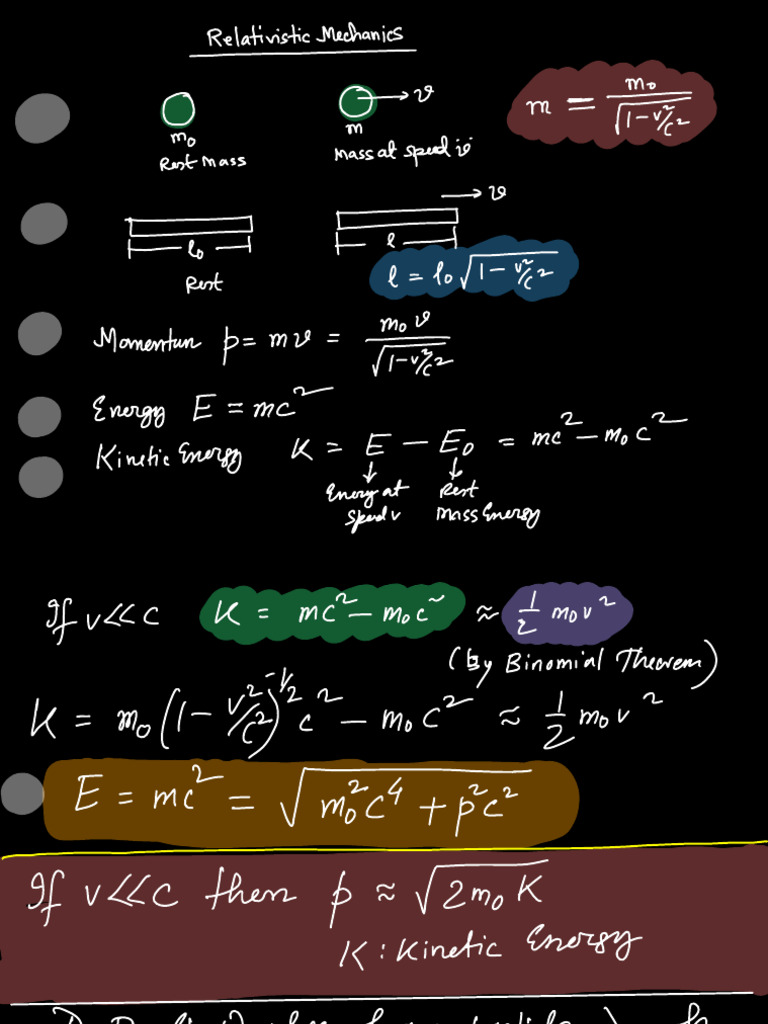 Relativistic Mechanics
m₀
Rest Mass
v
m
Mass at speed 'v'
m = m₀/√(1-v²/c²)
l₀
Rest
v
l
l = l₀√(1-v²/c²)
Momentum p = mv = m₀v/√(1-v²/c²)
Energy E = mc²
Kinetic Energy K = E - E₀ = mc² - m₀c²
↓ ↓
Energy at Rest
speed v Mass Energy
If v<<c K = mc² - m₀c² ≈ 1/2 m₀v²
(by Binomial Theorem)
K = m₀(1-v²/c²)^(-1/2) c² - m₀c² ≈ 1/2 m₀v²
E = mc² = √(m₀²c⁴ + p²c²)
If v<<c then p ≈ √(2m₀K)
K: Kinetic Energy